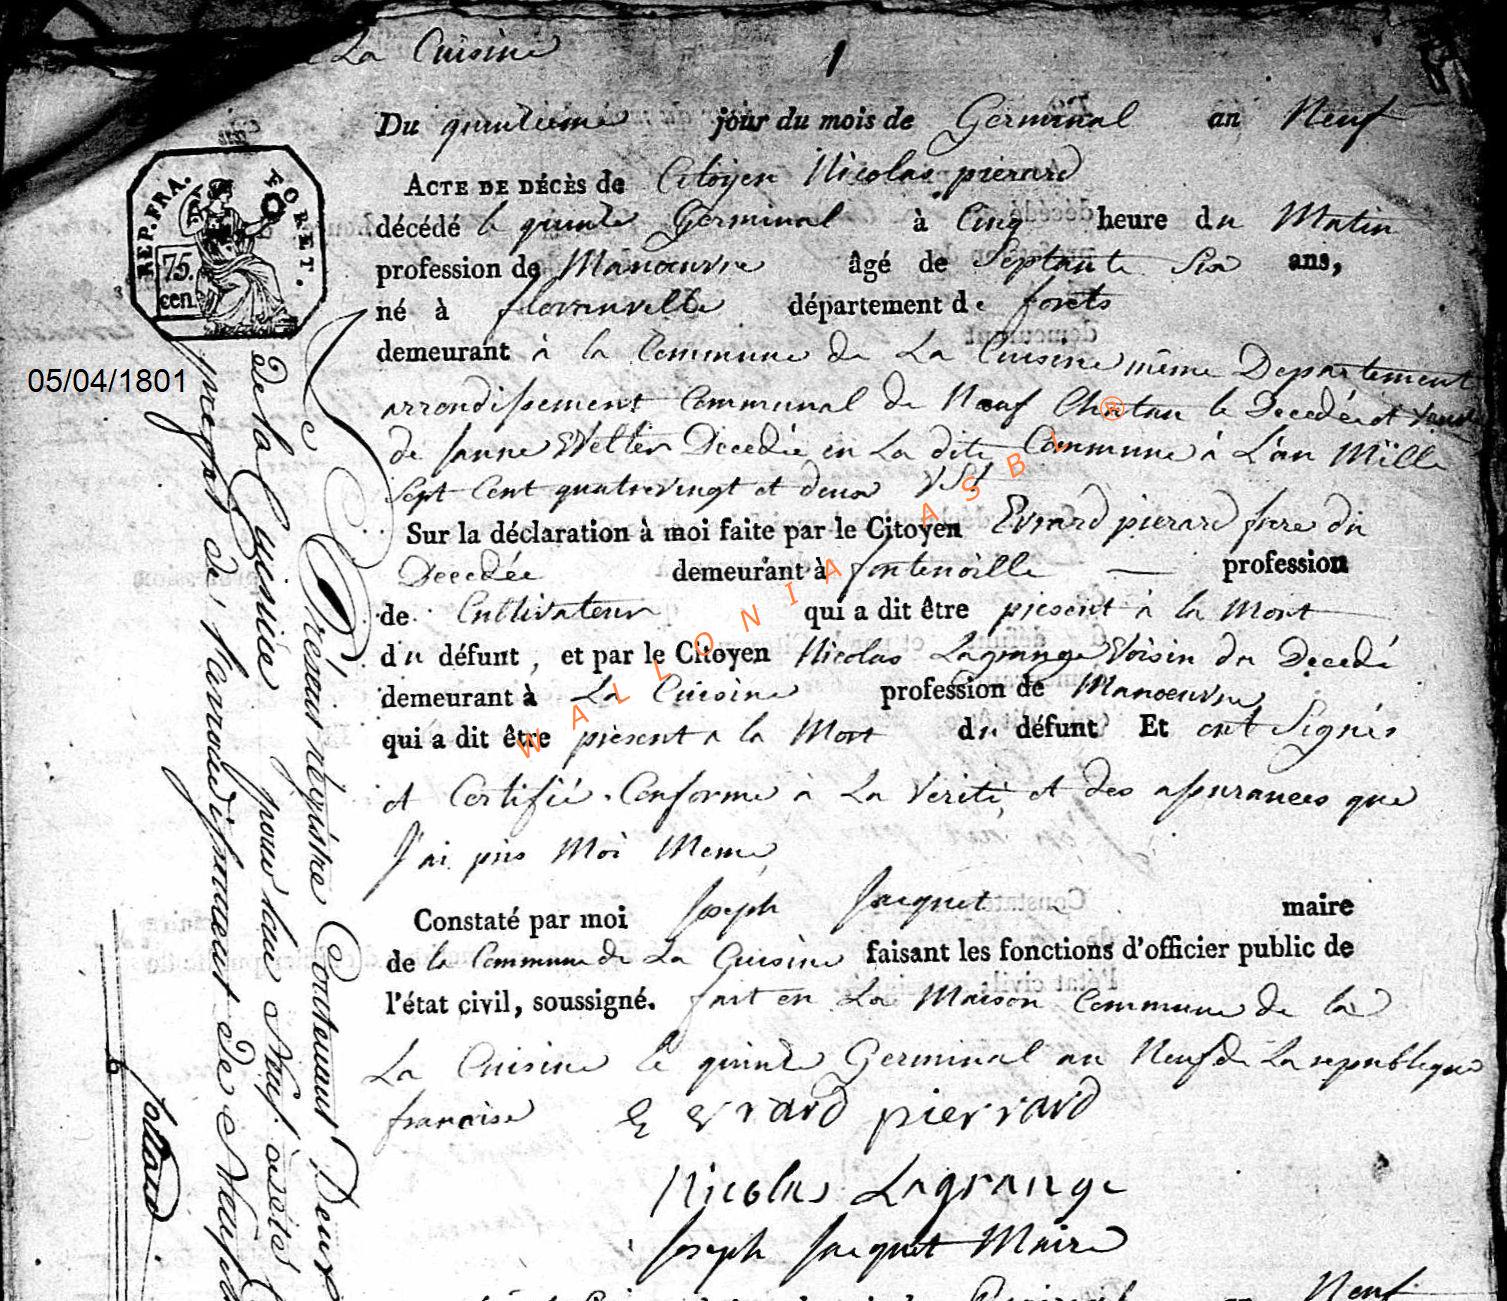 La Cuisine
1
Du quinzieme jour du mois de Germinal an Neuf
ACTE DE DÉCÈS de Citoyen Nicolas pierard
décédé le quinze Germinal à Cinq heure du Matin
profession de Manoeuvre âgé de Septante Six ans,
né à florenville département de forets
demeurant à la Commune de La Cuisine même Departement
arrondissement Communal de Neuf Chatau le Decedé et
de Janne Decedée en La dite Commune à L'an Mille
Sept Cent quatrevingt et deux
Sur la déclaration à moi faite par le Citoyen Evrard pierard frere du
Decedée demeurant à fontenoille — profession
de Cultivateur qui a dit être présent à la Mort
du défunt, et par le Citoyen Nicolas Lagrange Voisin du Decedé
demeurant à La Cuisine profession de Manoeuvre
qui a dit être present a la Mort du défunt Et ont Signés
et Certifié Conforme à La Verité, et des assurances que
J'ai pris Moi Meme
Constaté par moi Joseph Jacquet maire
de la Commune de La Cuisine faisant les fonctions d'officier public de
l'état civil, soussigné. fait en La Maison Commune de la
La Cuisine le quinze Germinal an Neuf de La republique
francoise E evrard pierrard
Nicolas Lagrange
Joseph Jacquet Maire
Neuf
REP. FRA.
FORET.
75.
cen.
05/04/1801
Le Présent régistre Contenant Deux
de la Cuisine pour l'an Neuf
prefet de l'Arrondissement de Neufch
6
WALLONIA ASBL ®